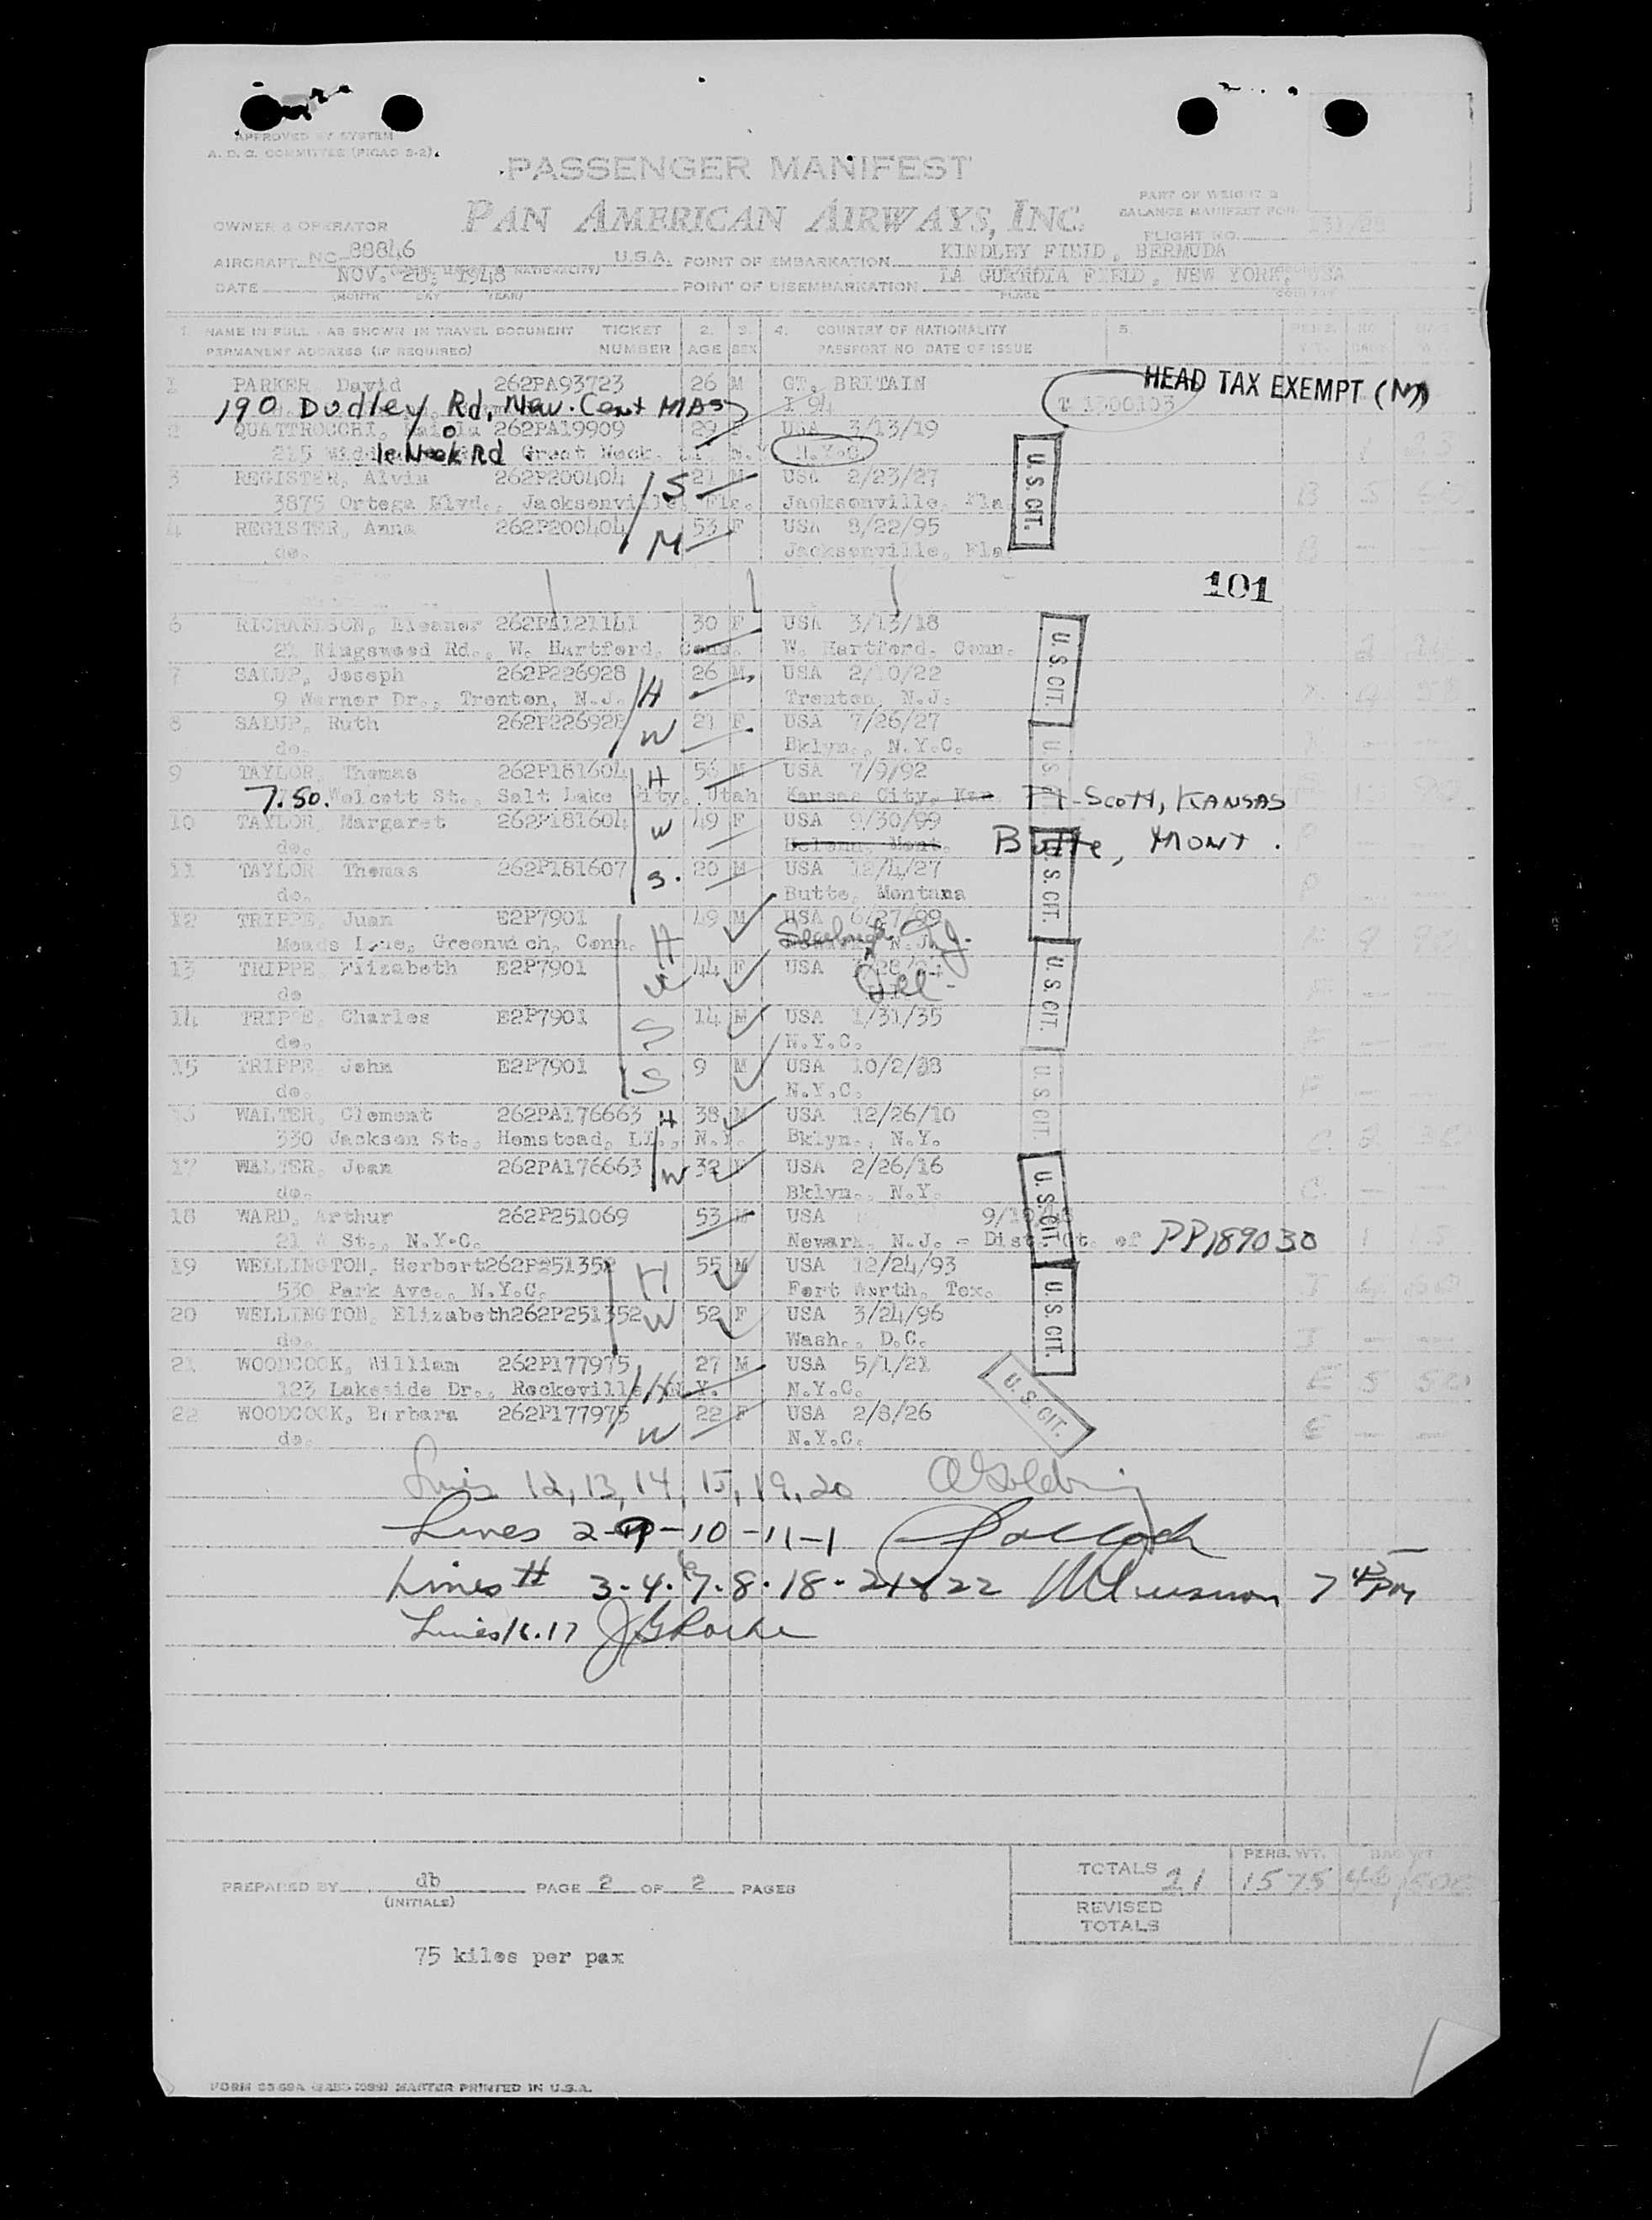 APPROVED BY SYSTEM
A. D. C. COMMITTEE (PICAO S-2).
PASSENGER MANIFEST
PAN AMERICAN AIRWAYS, INC.
PART OF WEIGHT &
BALANCE MANIFEST FOR
OWNER & OPERATOR
FLIGHT NO.
AIRCRAFT NC 88846 U.S.A. POINT OF EMBARKATION KINDLEY FIELD, BERMUDA
DATE NOV. 20, 1948 POINT OF DISEMBARKATION LA GUARDIA FIELD, NEW YORK, USA
(MONTH DAY YEAR) PLACE COUNTRY
1. NAME IN FULL - AS SHOWN IN TRAVEL DOCUMENT TICKET 2. 3. 4. COUNTRY OF NATIONALITY 5.
PERMANENT ADDRESS (IF REQUIRED) NUMBER AGE SEX PASSPORT NO. DATE OF ISSUE
1 PARKER, David 262PA93723 26 M GT. BRITAIN HEAD TAX EXEMPT (N)
190 Dudley Rd, New. Cent MAS I 94 T 1300103
2 QUATTROCCHI, 262PA19909 29 F USA 3/13/19
215 Middle Neck Rd. Great Neck, LI, N.Y. N.Y.C.
3 REGISTER, Alvin 262P200404 S 21 M USA 2/23/27 U.S. CIT. B
3875 Ortega Blvd., Jacksonville, Fla. Jacksonville, Fla
4 REGISTER, Anna 262P200404 M 53 F USA 8/22/95 B — —
do. Jacksonville, Fla
101
6 RICHARDSON, Eleanor 262PA121141 30 F USA 3/13/18 U.S. CIT.
21 Kingswood Rd., W. Hartford, Conn. W. Hartford, Conn.
7 SALUP, Joseph 262P226928 H 26 M. USA 2/10/22
9 Warner Dr., Trenton, N.J. Trenton, N.J.
8 SALUP, Ruth 262P226928 W 21 F. USA 7/26/27 U.S. CIT.
do. Bklyn., N.Y.C.
9 TAYLOR, Thomas 262P181604 H 56 M USA 7/9/92
7.50. Wolcott St., Salt Lake City, Utah Kansas City, Kan. Ft-Scott, KANSAS
10 TAYLOR, Margaret 262P181604 W 49 F USA 9/30/99
do. Helena, Mont. Butte, MONT.
11 TAYLOR Thomas 262P181607 S. 20 M USA 12/4/27 U.S. CIT. P
do. Butte, Montana
12 TRIPPE, Juan E2P7901 H 49 M USA 6/27/99
Meads Lane, Greenwich, Conn. N.J. N.J.
13 TRIPPE, Elizabeth E2P7901 W 44 F USA U.S. CIT.
do Ill.
14 TRIPPE, Charles E2P7901 S 14 M USA 1/31/35
do. N.Y.C.
15 TRIPPE, John E2P7901 S 9 M USA 10/2/38 U.S. CIT.
do. N.Y.C.
16 WALTER, Clement 262PA176663 H 38 M USA 12/26/10
330 Jackson St., Hemstead, LI., N.Y. Bklyn., N.Y.
17 WALTER, Jean 262PA176663 W 32 F USA 2/26/16 U.S. CIT. C — —
do. Bklyn., N.Y.
18 WARD, Arthur 262P251069 53 M USA
21 W St., N.Y.C. Newark, N.J. - Dist. Ct. of PP189030
19 WELLINGTON, Herbert 262P251352 H 55 M USA 12/24/93
530 Park Ave., N.Y.C. Fort Worth, Tex.
20 WELLINGTON, Elizabeth 262P251352 W 52 F USA 3/24/96 U.S. CIT. J — —
do. Wash., D.C.
21 WOODCOCK, William 262P177975 H 27 M USA 5/1/21
123 Lakeside Dr., Rockeville, N.Y. N.Y.C. U.S. CIT. E 5
22 WOODCOCK, Barbara 262P177975 W 22 F USA 2/8/26 E — —
do. N.Y.C.
Lines 12, 13, 14, 15, 19, 20
Lines 2-9-10-11-1
Lines # 3.4.6 7.8.18.21 & 22 7 45 PM
Lines 16.17
TOTALS 21 PERS. WT. 1575 BAG WT.
PREPARED BY db PAGE 2 OF 2 PAGES
(INITIALS)
REVISED
TOTALS
75 kilos per pax
MASTER PRINTED IN U.S.A.